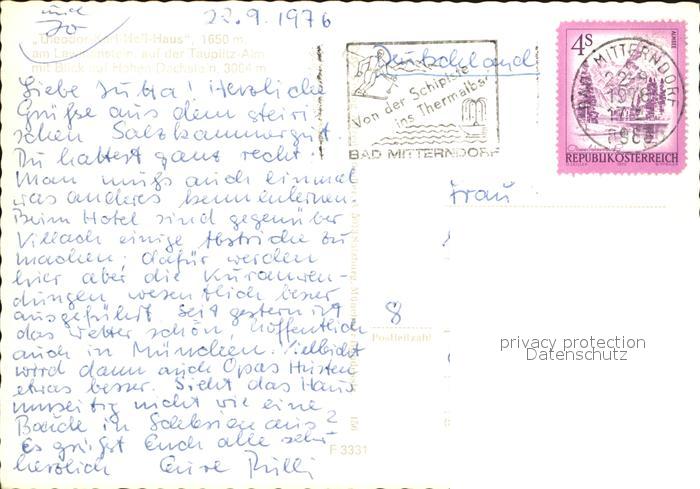 und
Jo
22.9.1976
"Theodor-Karl-Holl-Haus", 1650 m
am Lawinenstein, auf der Tauplitz-Alm
mit Blick auf Hohen Dachstein, 3004 m
Deutschland
Von der Schipiste
ins Thermalbad
BAD MITTERNDORF
4S
REPUBLIK ÖSTERREICH
BAD MITTERNDORF
22.-9.
1976
17
8983
Liebe Jutta! Herzliche
Grüße aus dem steiri-
schen Salzkammergut.
Du hattest ganz recht.
Man muß auch einmal
was anderes kennenlernen.
Beim Hotel sind gegenüber
Villach einige Abstriche zu
machen; dafür werden
hier aber die Kuranwen-
dungen wesentlich besser
ausgeführt. Seit gestern ist
das Wetter schön, hoffentlich
auch in München. Vielleicht
wird dann auch Opas Husten
etwas besser. Sieht das Haus
umseitig nicht wie eine
Baude in Schlesien aus?
Es grüßt Euch alle sehr
herzlich Eure
Frau
8
Postleitzahl
F 3331
privacy protection
Datenschutz